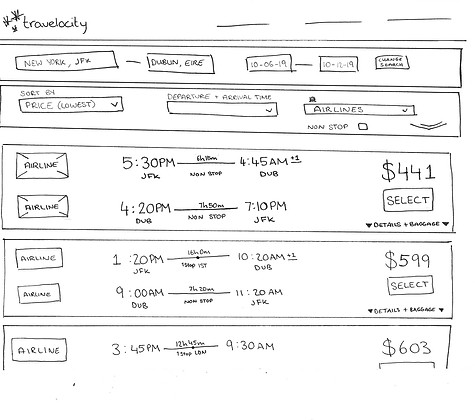 travelocity
NEW YORK, JFK — DUBLIN, EIRE 10-06-19 — 10-12-19 CHANGE SEARCH
SORT BY DEPARTURE + ARRIVAL TIME
PRICE (LOWEST) AIRLINES
NON STOP
AIRLINE 5:30PM 6h15m 4:45AM +1 $441
JFK NON STOP DUB
AIRLINE 4:20PM 7h50m 7:10PM SELECT
DUB NON STOP JFK
▼DETAILS + BAGGAGE▼
AIRLINE 1:20PM 16h0m 10:20AM +1 $599
JFK 1 STOP IST DUB
AIRLINE 9:00AM 7h20m 11:20AM SELECT
DUB NON STOP JFK
▼DETAILS + BAGGAGE▼
AIRLINE 3:45PM 12h45m 9:30AM $603
1 STOP LDN